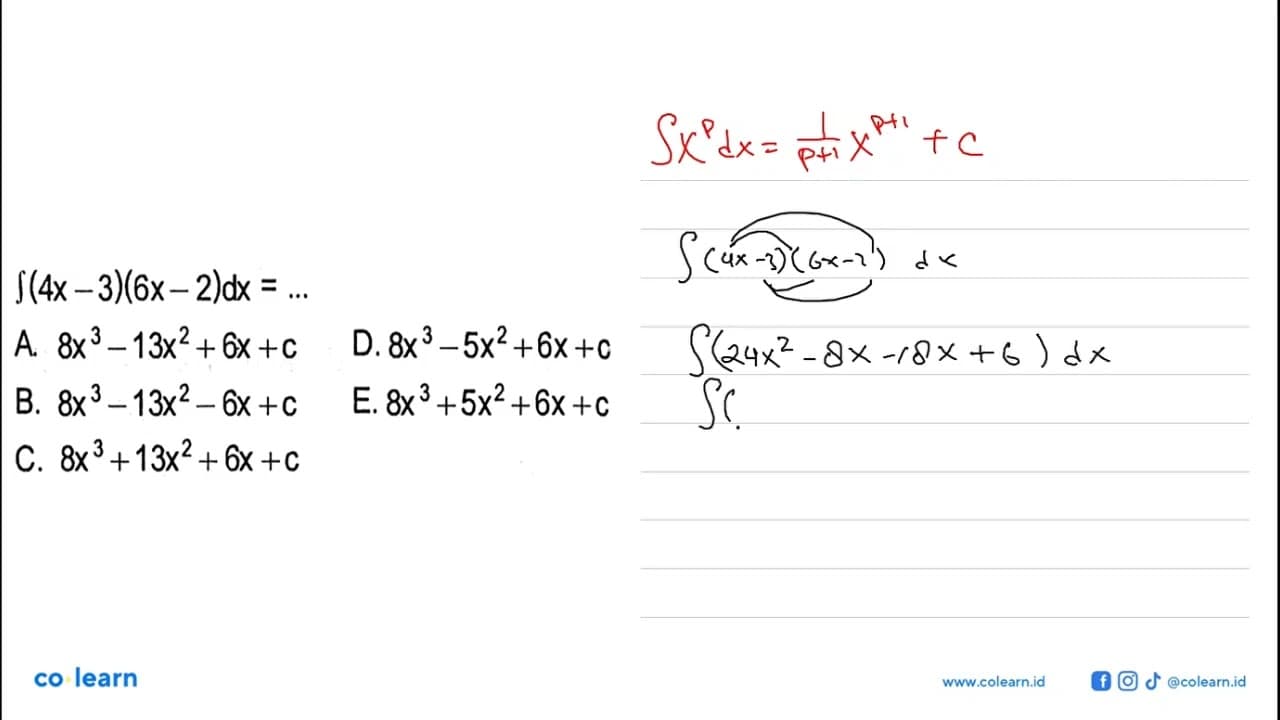 ∫(4x – 3)(6x – 2)dx = ...
A. 8x³ – 13x² + 6x + c
B. 8x³ – 13x² – 6x + c
C. 8x³ + 13x² + 6x + c
D. 8x³ – 5x² + 6x + c
E. 8x³ + 5x² + 6x + c
∫x^p dx = 1/(p+1) x^(p+1) + c
∫(4x – 3)(6x – 2) dx
∫(24x² – 8x – 18x + 6) dx
∫(
co learn
www.colearn.id
@colearn.id